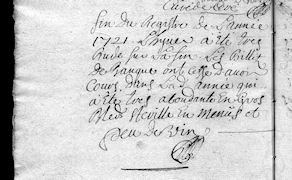 Curé de
fin du Registre de L'année
1721 L'hyuer a été tres
Rude sur La fin Les Billets
de Banque ont cessé d'auoir
Cours, dans La d. année qui
a été tres abondante En Gros
Bleds steville en menües et
peu de Vin